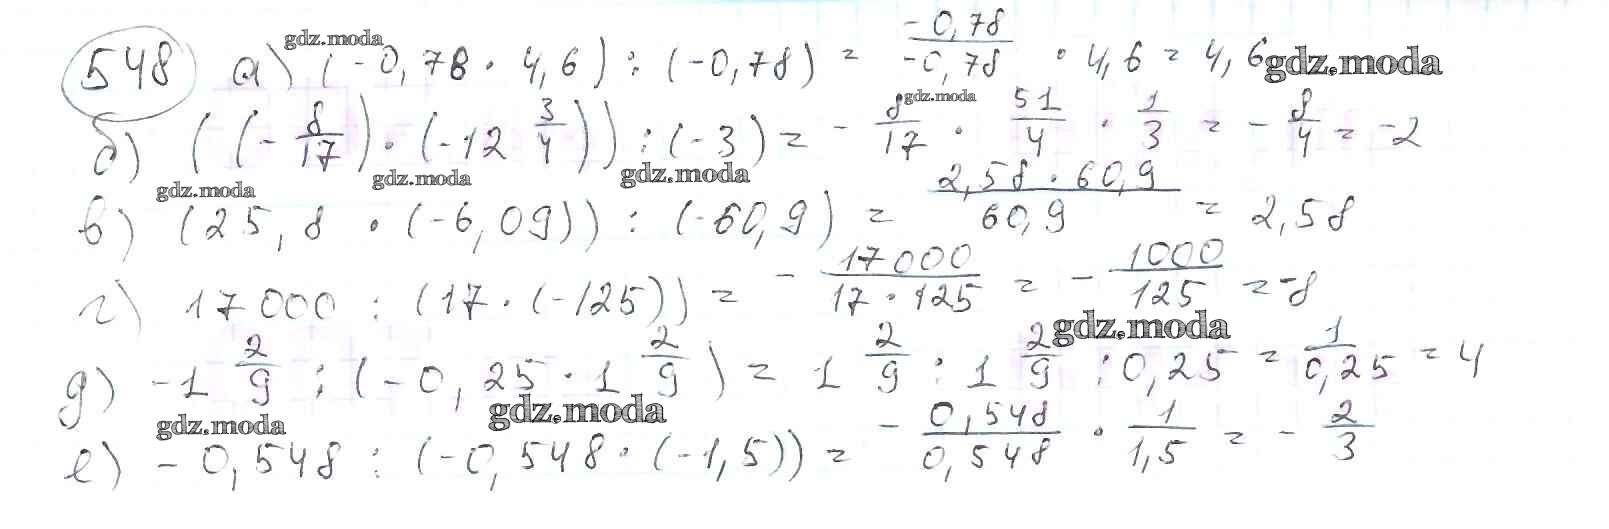 548 а) (-0,78 · 4,6) : (-0,78) = -0,78/-0,78 · 4,6 = 4,6
б) ((-8/17) · (-12 3/4)) : (-3) = -8/17 · 51/4 · 1/3 = -8/4 = -2
в) (25,8 · (-6,09)) : (-60,9) = 2,58 · 60,9/60,9 = 2,58
г) 17000 : (17 · (-125)) = -17000/17 · 125 = -1000/125 = -8
д) -1 2/9 : (-0,25 · 1 2/9) = 1 2/9 : 1 2/9 : 0,25 = 1/0,25 = 4
е) -0,548 : (-0,548 · (-1,5)) = -0,548/0,548 · 1/1,5 = -2/3
gdz.moda
gdz.moda
gdz.moda
gdz.moda
gdz.moda
gdz.moda
gdz.moda
gdz.moda
gdz.moda